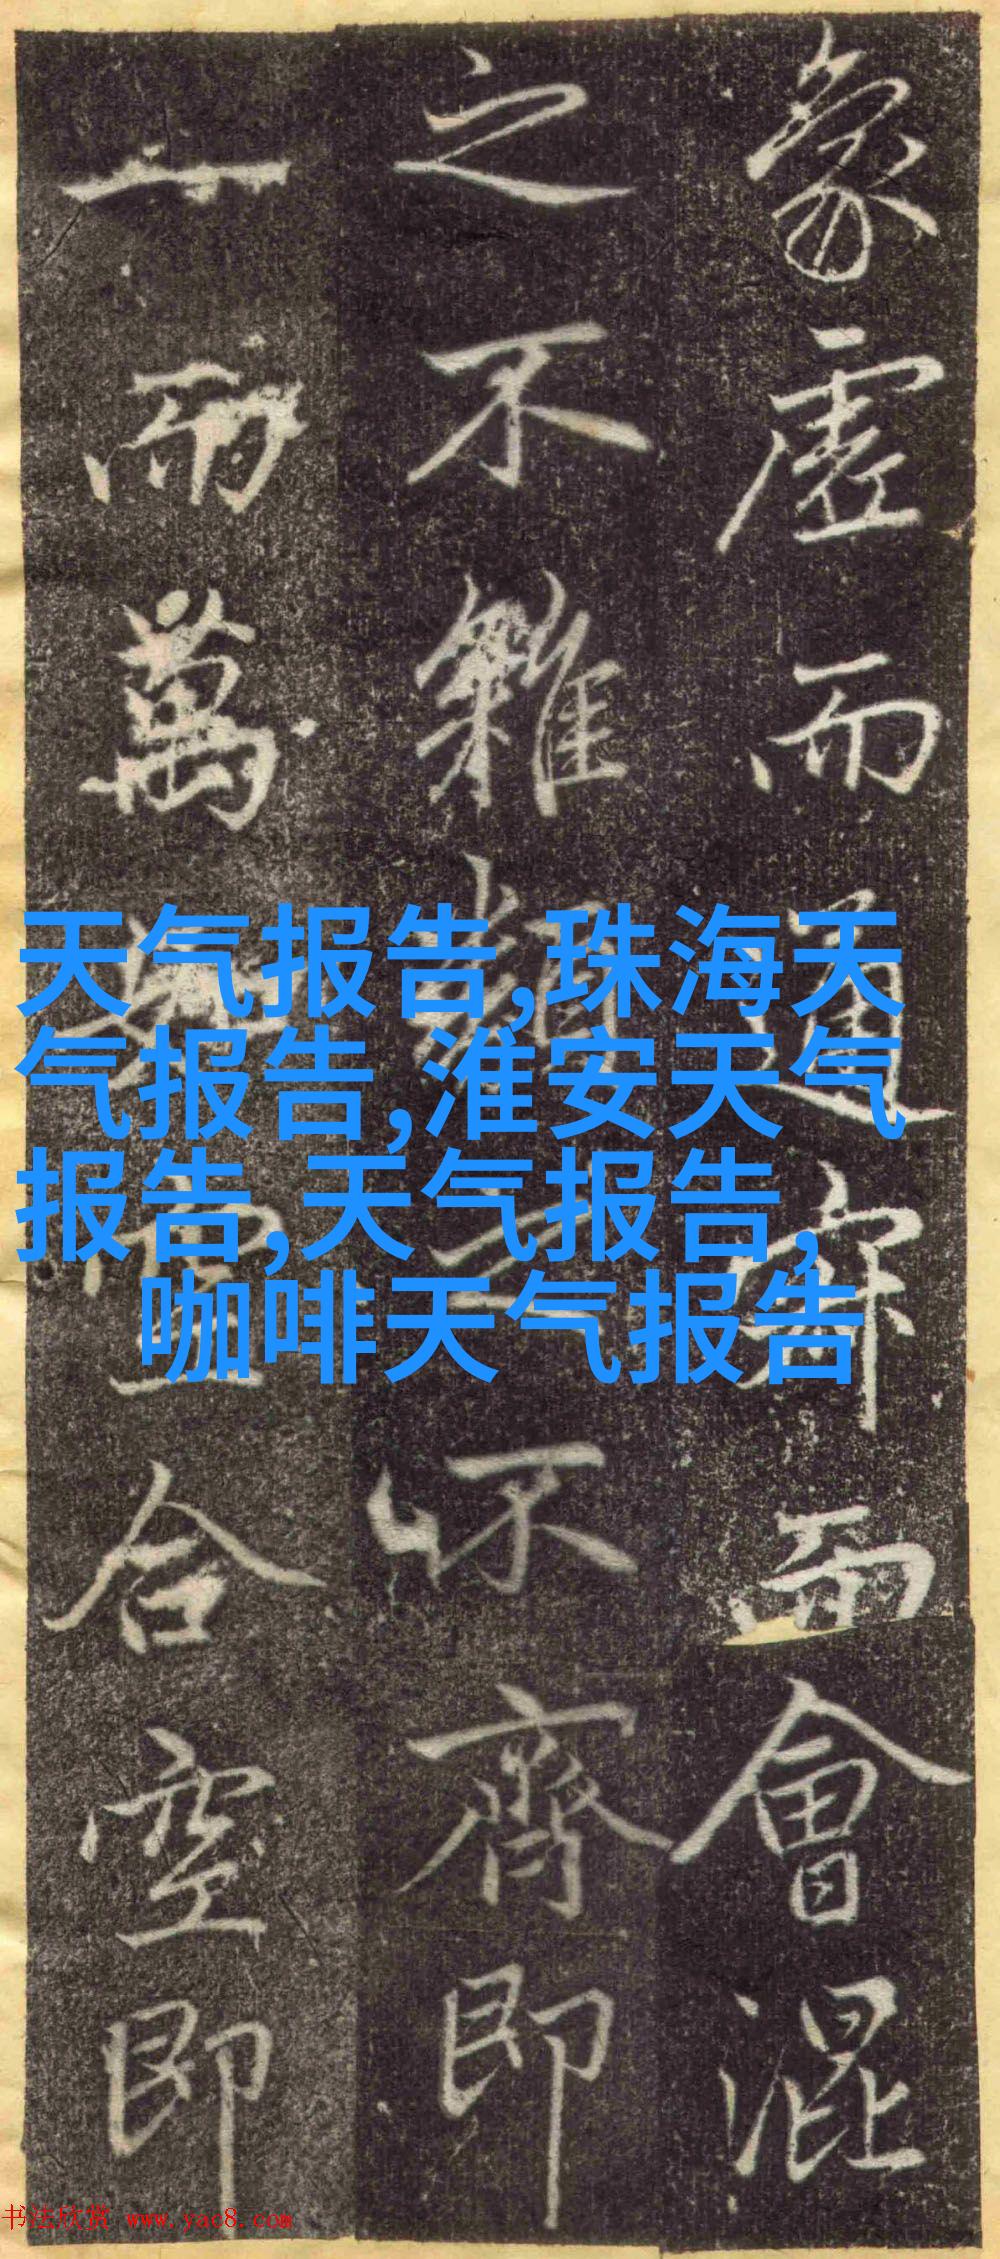 象虛而通寂而會混
之不雜類之不齊即
一而萬合空即
天气报告,珠海天
气报告,淮安天气
报告,天气报告,
咖啡天气报告
书法欣赏 www.yac8.com